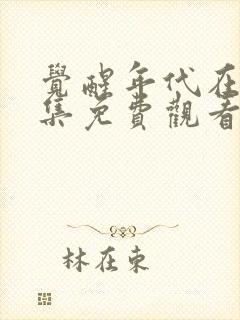 覺醒年代在
集免費觀看
林在東